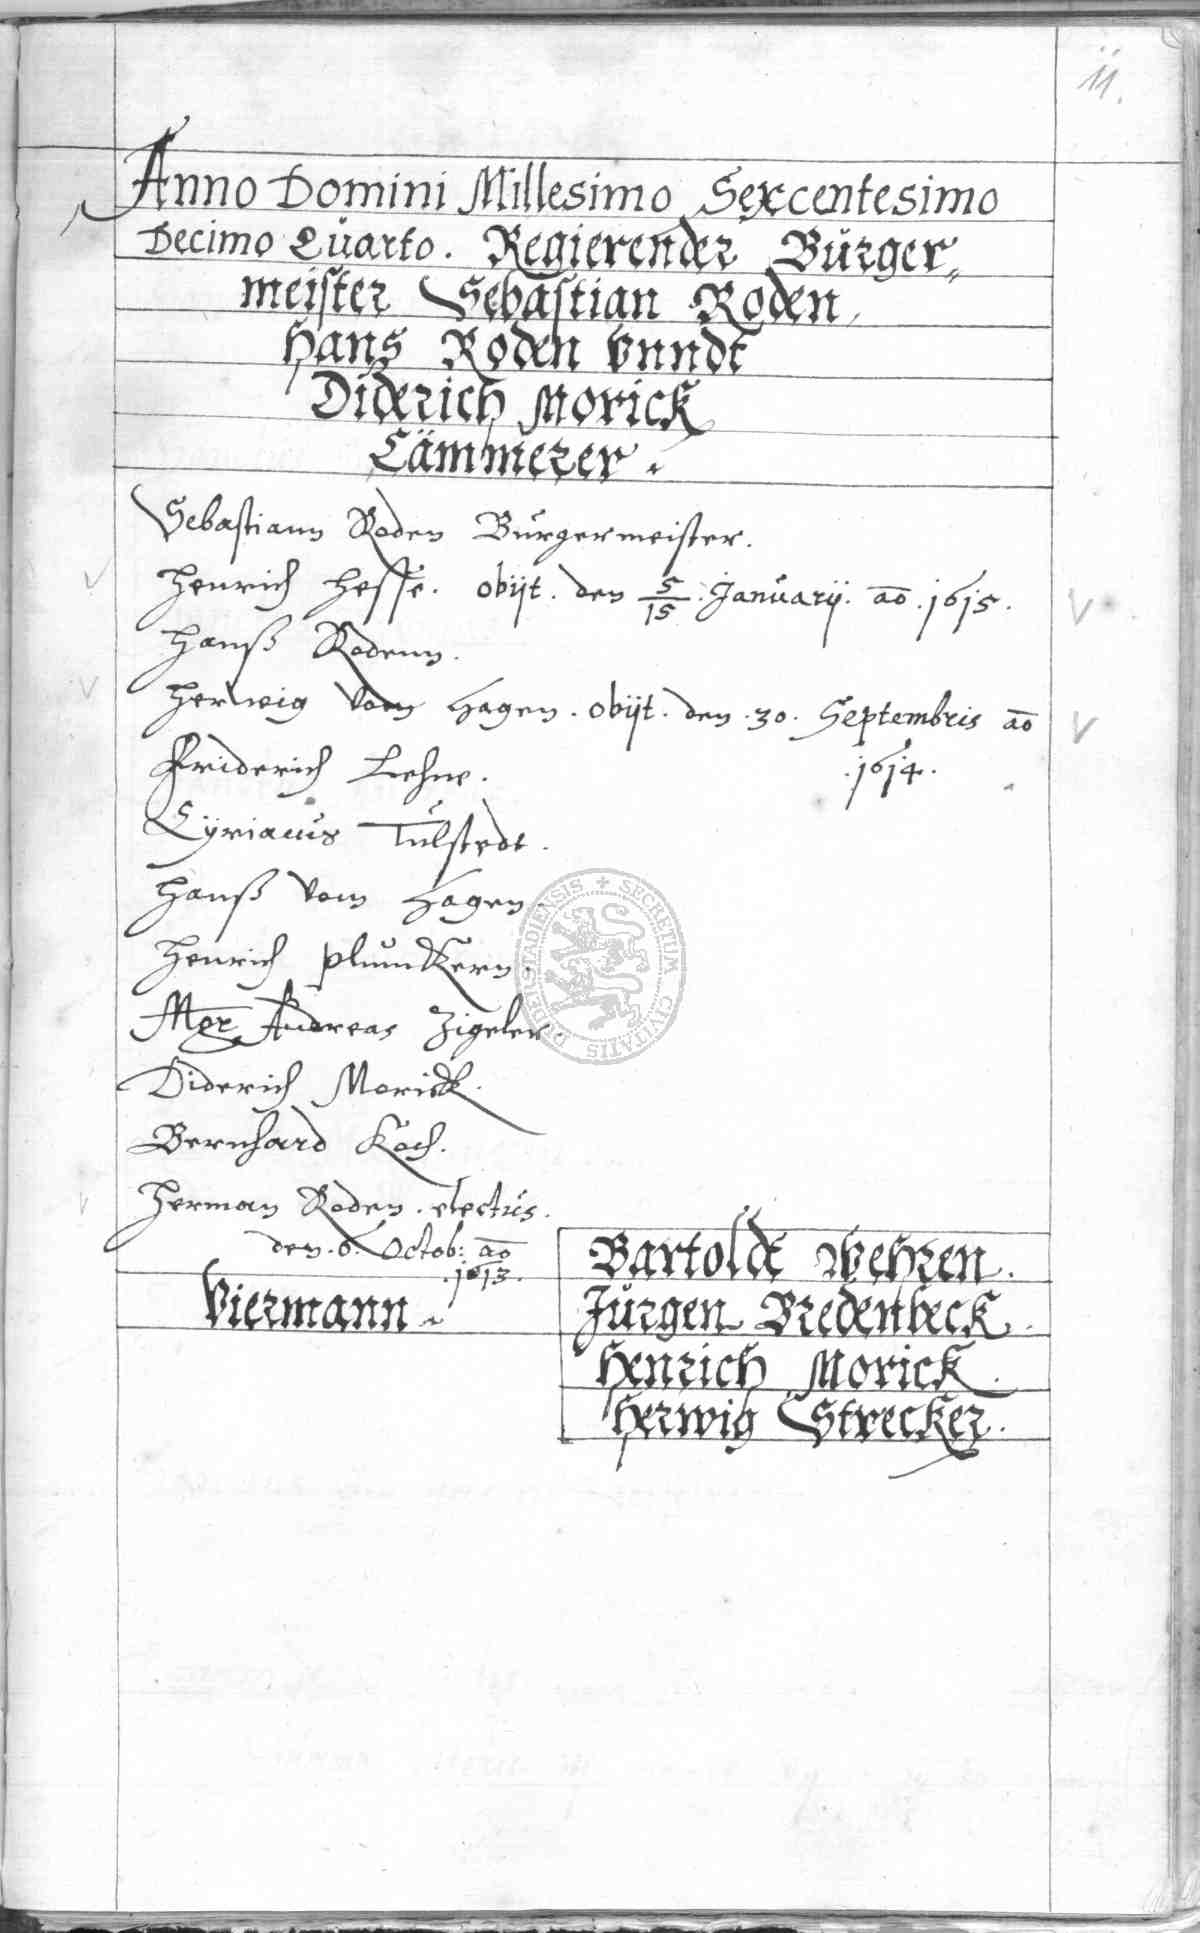 11.
Anno Domini Millesimo Sexcentesimo
Decimo Quarto. Regierender Bürger„
meister Sebastian Roden,
Hans Roden Vnndt
Diderich Morick
Cämmerer.
Sebastiann Roden Bürgermeister.
Henrich Hesse. obijt. den 5/15. Januarij. ao. 1615.
Hanß Rodenn.
Herwig Vom Hagen. obijt. den. 30. Septembris ao
.1614.
Friderich Lehne.
Cyriacus Tulstedt.
Hanß Vom Hagen.
Henrich Plumkern.
Mgr Andreas Zigeler.
Diderich Morick.
Bernhard Koch.
Herman Roden. electus.
den. 6. Octob: ao
.1613.
Viermann.
Bartoldt Wehren.
Jürgen Bredenbeck.
Henrich Morick.
Herwig Strecker.
SECRETUM CIVITATIS DUDERSTADIENSIS